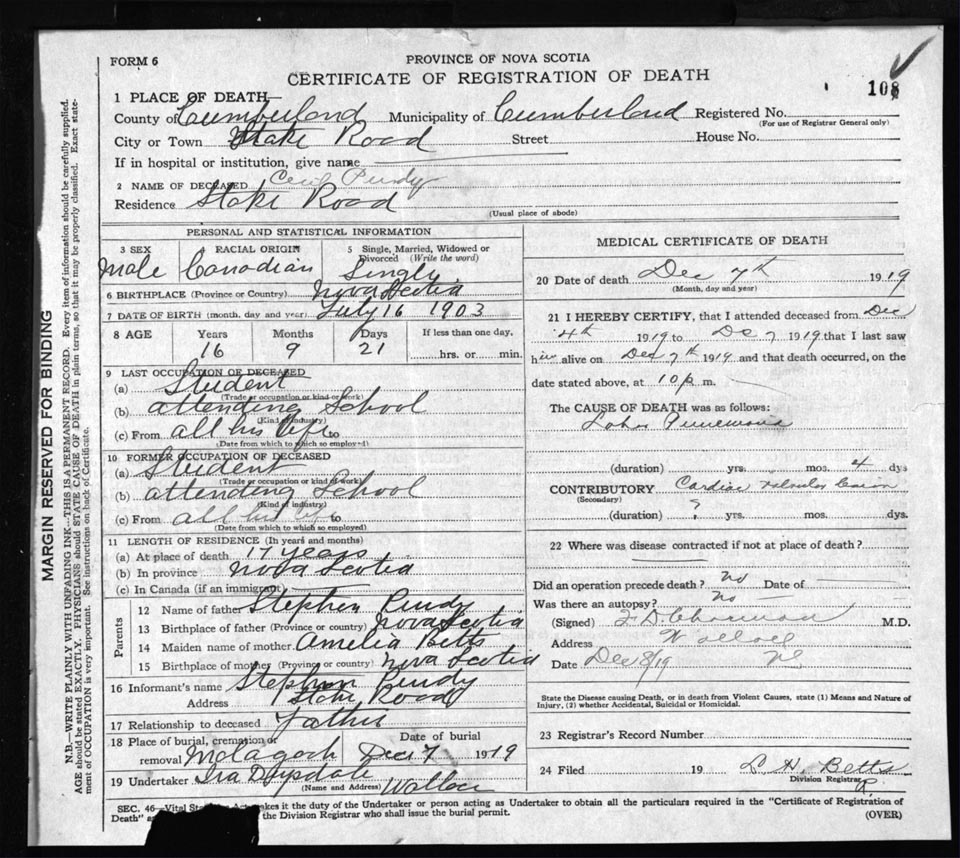 FORM 6
PROVINCE OF NOVA SCOTIA
CERTIFICATE OF REGISTRATION OF DEATH
108
1 PLACE OF DEATH—
County of Cumberland Municipality of Cumberland Registered No.
(For use of Registrar General only)
City or Town Stake Road Street House No.
If in hospital or institution, give name
2 NAME OF DECEASED Cecil Purdy
Residence Stake Road
(Usual place of abode)
PERSONAL AND STATISTICAL INFORMATION
3 SEX 4 RACIAL ORIGIN 5 Single, Married, Widowed or Divorced (Write the word)
Male Canadian Single
6 BIRTHPLACE (Province or Country) Nova Scotia
7 DATE OF BIRTH (month, day and year) July 16 1903
8 AGE Years Months Days If less than one day,
16 9 21 hrs. or min.
9 LAST OCCUPATION OF DECEASED
(a) Student
(Trade or occupation or kind of work)
(b) attending School
(Kind of industry)
(c) From all his life to
(Date from which to which so employed)
10 FORMER OCCUPATION OF DECEASED
(a) Student
(Trade or occupation or kind of work)
(b) attending School
(Kind of industry)
(c) From all his life to
(Date from which to which so employed)
11 LENGTH OF RESIDENCE (In years and months)
(a) At place of death 17 years
(b) In province Nova Scotia
(c) In Canada (if an immigrant)
Parents
12 Name of father Stephen Purdy
13 Birthplace of father (Province or country) Nova Scotia
14 Maiden name of mother Amelia Betts
15 Birthplace of mother (Province or country) Nova Scotia
16 Informant's name Stephen Purdy
Address Stake Road
17 Relationship to deceased Father
18 Place of burial, cremation or removal Date of burial
Dec 7 1919
19 Undertaker Ira Drysdale
(Name and Address) Wallace
MEDICAL CERTIFICATE OF DEATH
20 Date of death Dec 7th 1919
(Month, day and year)
21 I HEREBY CERTIFY, that I attended deceased from Dec
4th 1919 to Dec 7 1919 that I last saw
him alive on Dec 7th 1919 and that death occurred, on the
date stated above, at 10 p m.
The CAUSE OF DEATH was as follows:
Lobar Pneumonia
(duration) yrs. mos. 4 dys
CONTRIBUTORY Cardiac valvular lesion
(Secondary)
(duration) ? yrs. mos. dys.
22 Where was disease contracted if not at place of death?
Did an operation precede death? No Date of
Was there an autopsy? No
(Signed) M.D.
Address Wallace
Date Dec 8/19 NS
State the Disease causing Death, or in death from Violent Causes, state (1) Means and Nature of
Injury, (2) whether Accidental, Suicidal or Homicidal.
23 Registrar's Record Number
24 Filed 19 L. H. Betts
Division Registrar
SEC. 46—Vital makes it the duty of the Undertaker or person acting as Undertaker to obtain all the particulars required in the "Certificate of Registration of
Death" the Division Registrar who shall issue the burial permit. (OVER)
MARGIN RESERVED FOR BINDING
N.B.—WRITE PLAINLY WITH UNFADING INK—THIS IS A PERMANENT RECORD. Every item of information should be carefully supplied.
AGE should be stated EXACTLY. PHYSICIANS should STATE CAUSE OF DEATH in plain terms, so that it may be properly classified. Exact state-
ment of OCCUPATION is very important. See instructions on back of Certificate.